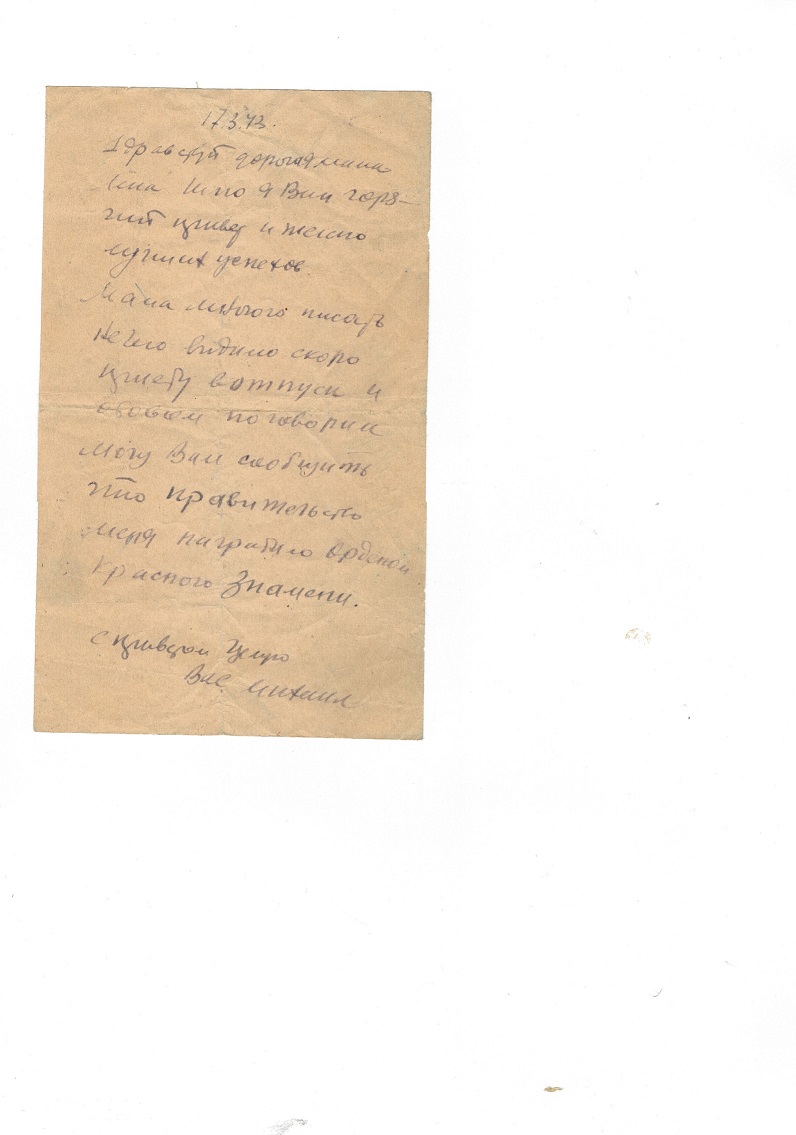 17.3.43.
Здравствуй дорогая мама
Шлю я Вам горя-
чий привед и желаю
лучших успехов.
Мама многого писать
нечего видимо скоро
приеду вотпуск и
обовсем поговорим
Могу Вам сообщить
что правительство
меня наградило орденом
Красного Знамени.
с приветом
Ваш Михаил